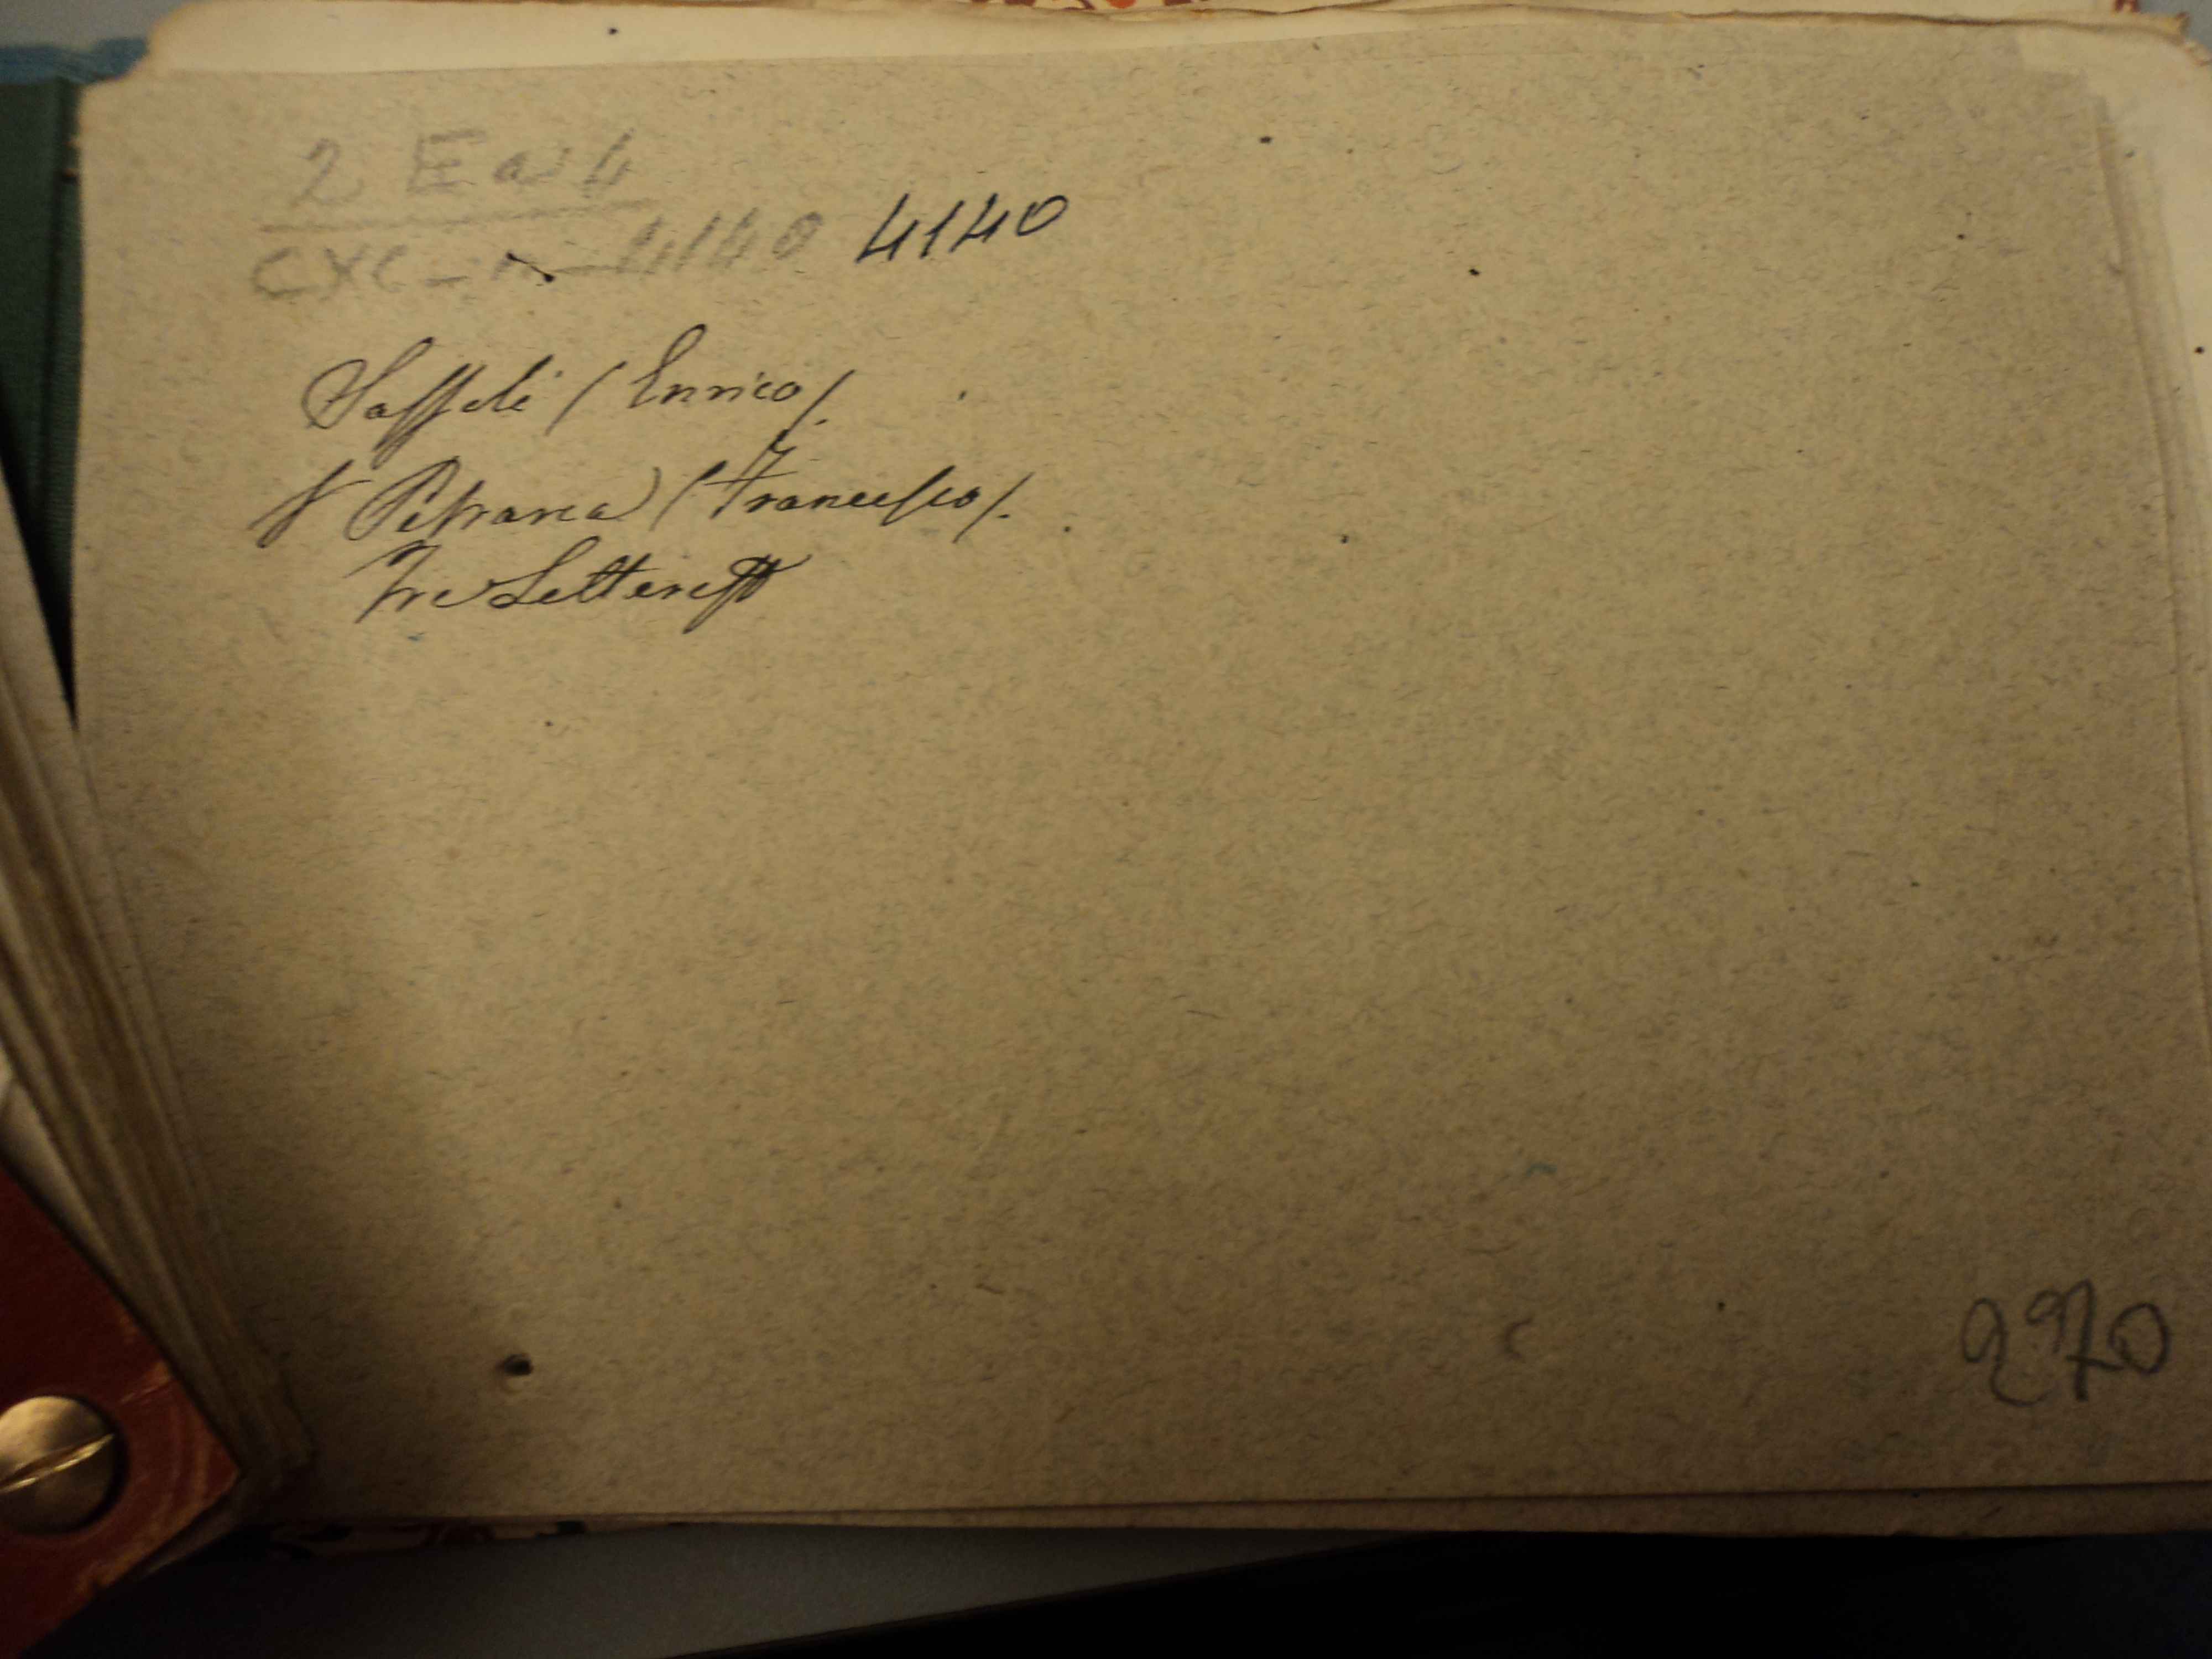 2 E a 4
CXC - 4140 4140
Saffoli (Enrico).
V Petrarca) (Francesco).
Tre Lettere
2970